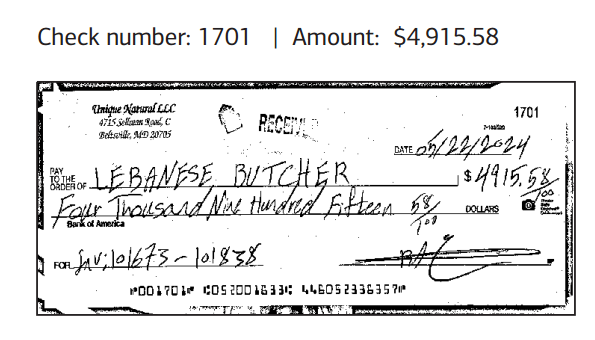 Check number: 1701 | Amount: $4,915.58
Unique Natural LLC
4715 Sellman Road, C
Beltsville, MD 20705
RECEIVED
1701
DATE 05/22/2024
PAY TO THE ORDER OF LEBANESE BUTCHER $4915.58/100
Four Thousand Nine Hundred Fifteen 58/100 DOLLARS
Bank of America
FOR Inv:101673-101838
⑈001701⑈ ⑆052001633⑆ 446052336357⑈